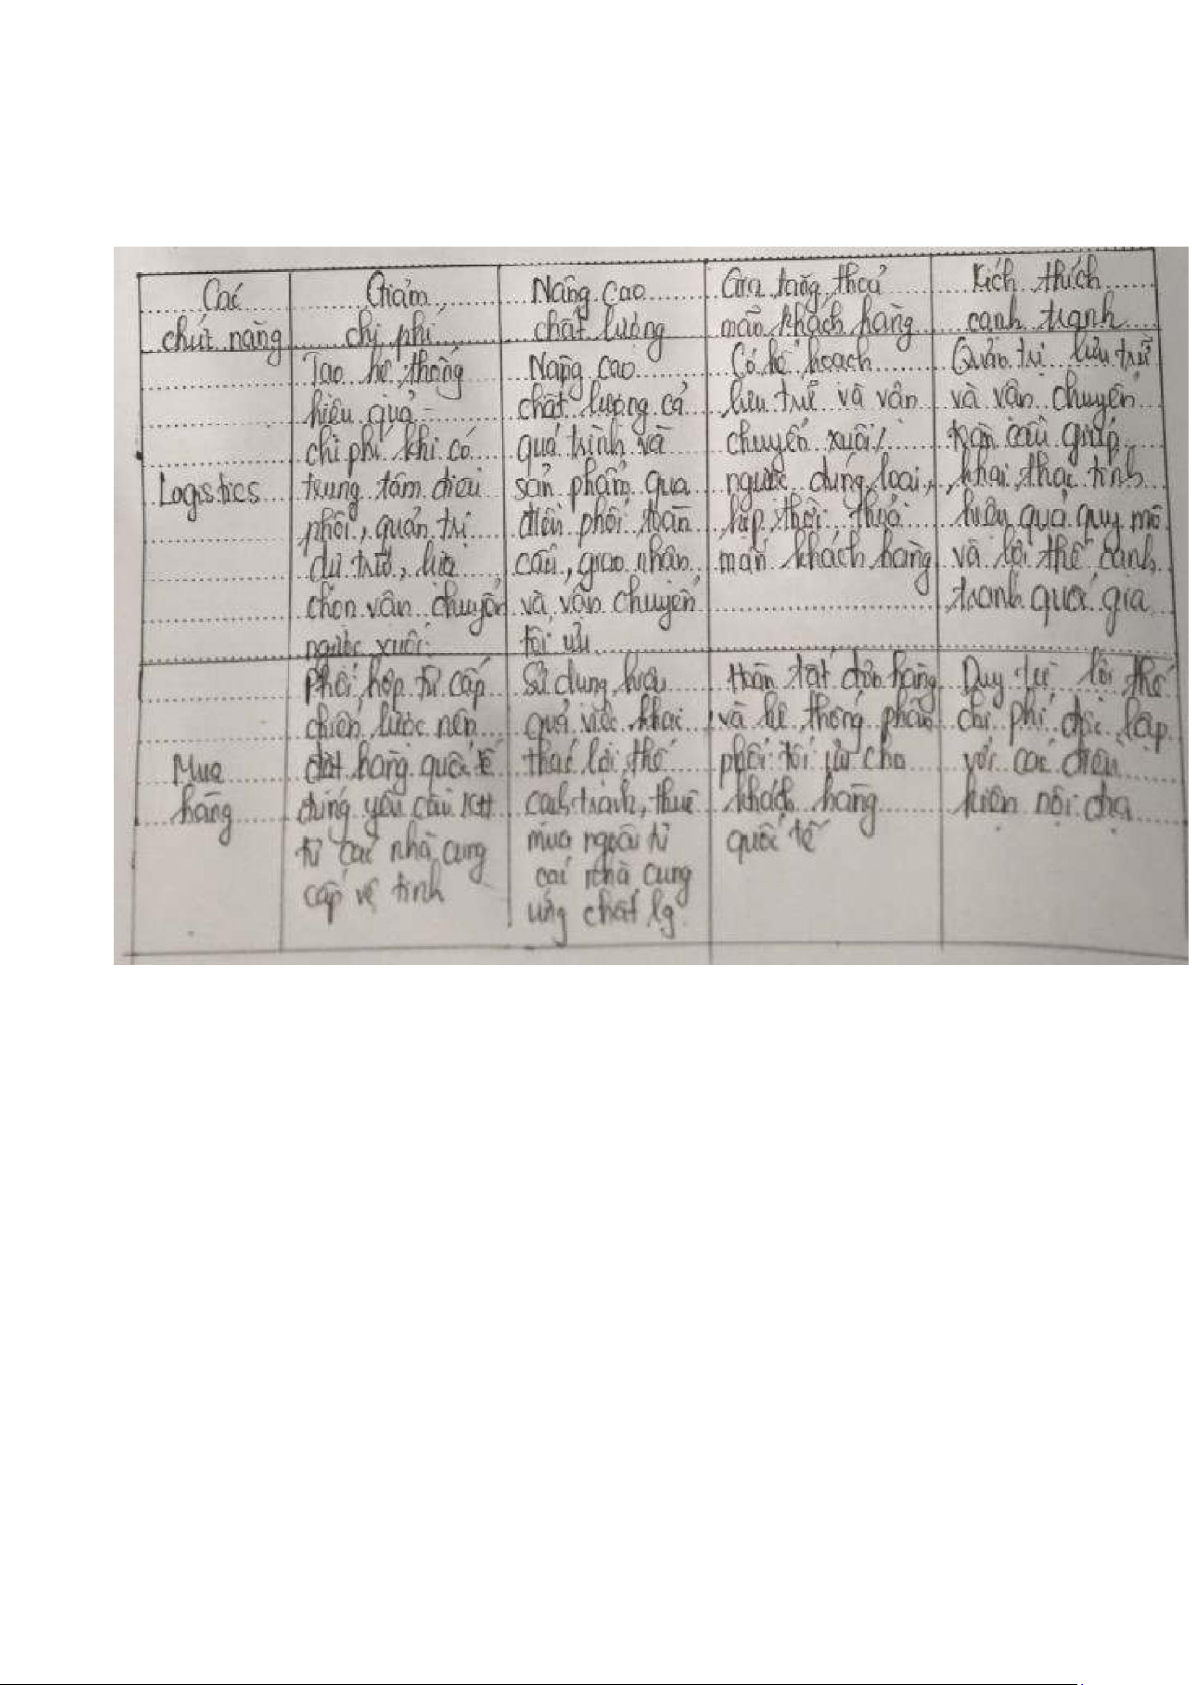 Các chức năng
Giảm chi phí
Nâng cao chất lượng
Gia tăng thoả mãn khách hàng
Kích thích cạnh tranh
Logistics
Tạo hệ thống
hiệu quả -
chi phí khi có
trung tâm điều
phối, quản trị
dự trữ, lựa
chọn vận chuyển
ngược xuôi.
Nâng cao
chất lượng cả
quá trình và
sản phẩm qua
điều phối toàn
cầu, giao nhận
và vận chuyển
tối ưu
Có kế hoạch
lưu trữ và vận
chuyển xuôi/
ngược đúng loại,
kịp thời thoả
mãn khách hàng
Quản trị lưu trữ
và vận chuyển
toàn cầu giúp
khai thác tính
hiệu quả quy mô
và lợi thế cạnh
tranh quốc gia
Mua
hàng
Phối hợp từ cấp
chiến lược nên
đặt hàng quốc tế
đúng yêu cầu KH
từ các nhà cung
cấp vệ tinh
Sử dụng hiệu
quả việc khai
thác lợi thế
cạnh tranh, thuê
mua ngoài từ
các nhà cung
ứng chất lg
Hoàn tất đơn hàng
và hệ thống phân
phối tối ưu cho
khách hàng
quốc tế
Duy trì lợi thế
chi phí độc lập
với các điều
kiện nội địa